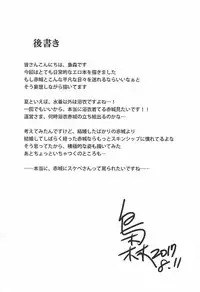 後書き
皆さんこんにちは、梟森です
今回はとても日常的なエロ本を描きました
もし赤城とこんな平凡な日々を送れるならいいなぁと
そう妄想しながら描いてます
夏といえば、水着以外は浴衣ですよね…!
一回でもいいから、本当に浴衣着てる赤城見たいです!!
運営さま、何時浴衣赤城の立ち絵出るのかな…
考えてみたんですけど、結婚したばかりの赤城より
結婚してしばらく経った赤城ならもっとスキンシップに慣れてるよな
そう思ってから、積極的な姿も描いてみた
あとちょっといちゃつくのところも…
……本当に、赤城にスケベさんって見られたいですね…
梟森 2017
8.11